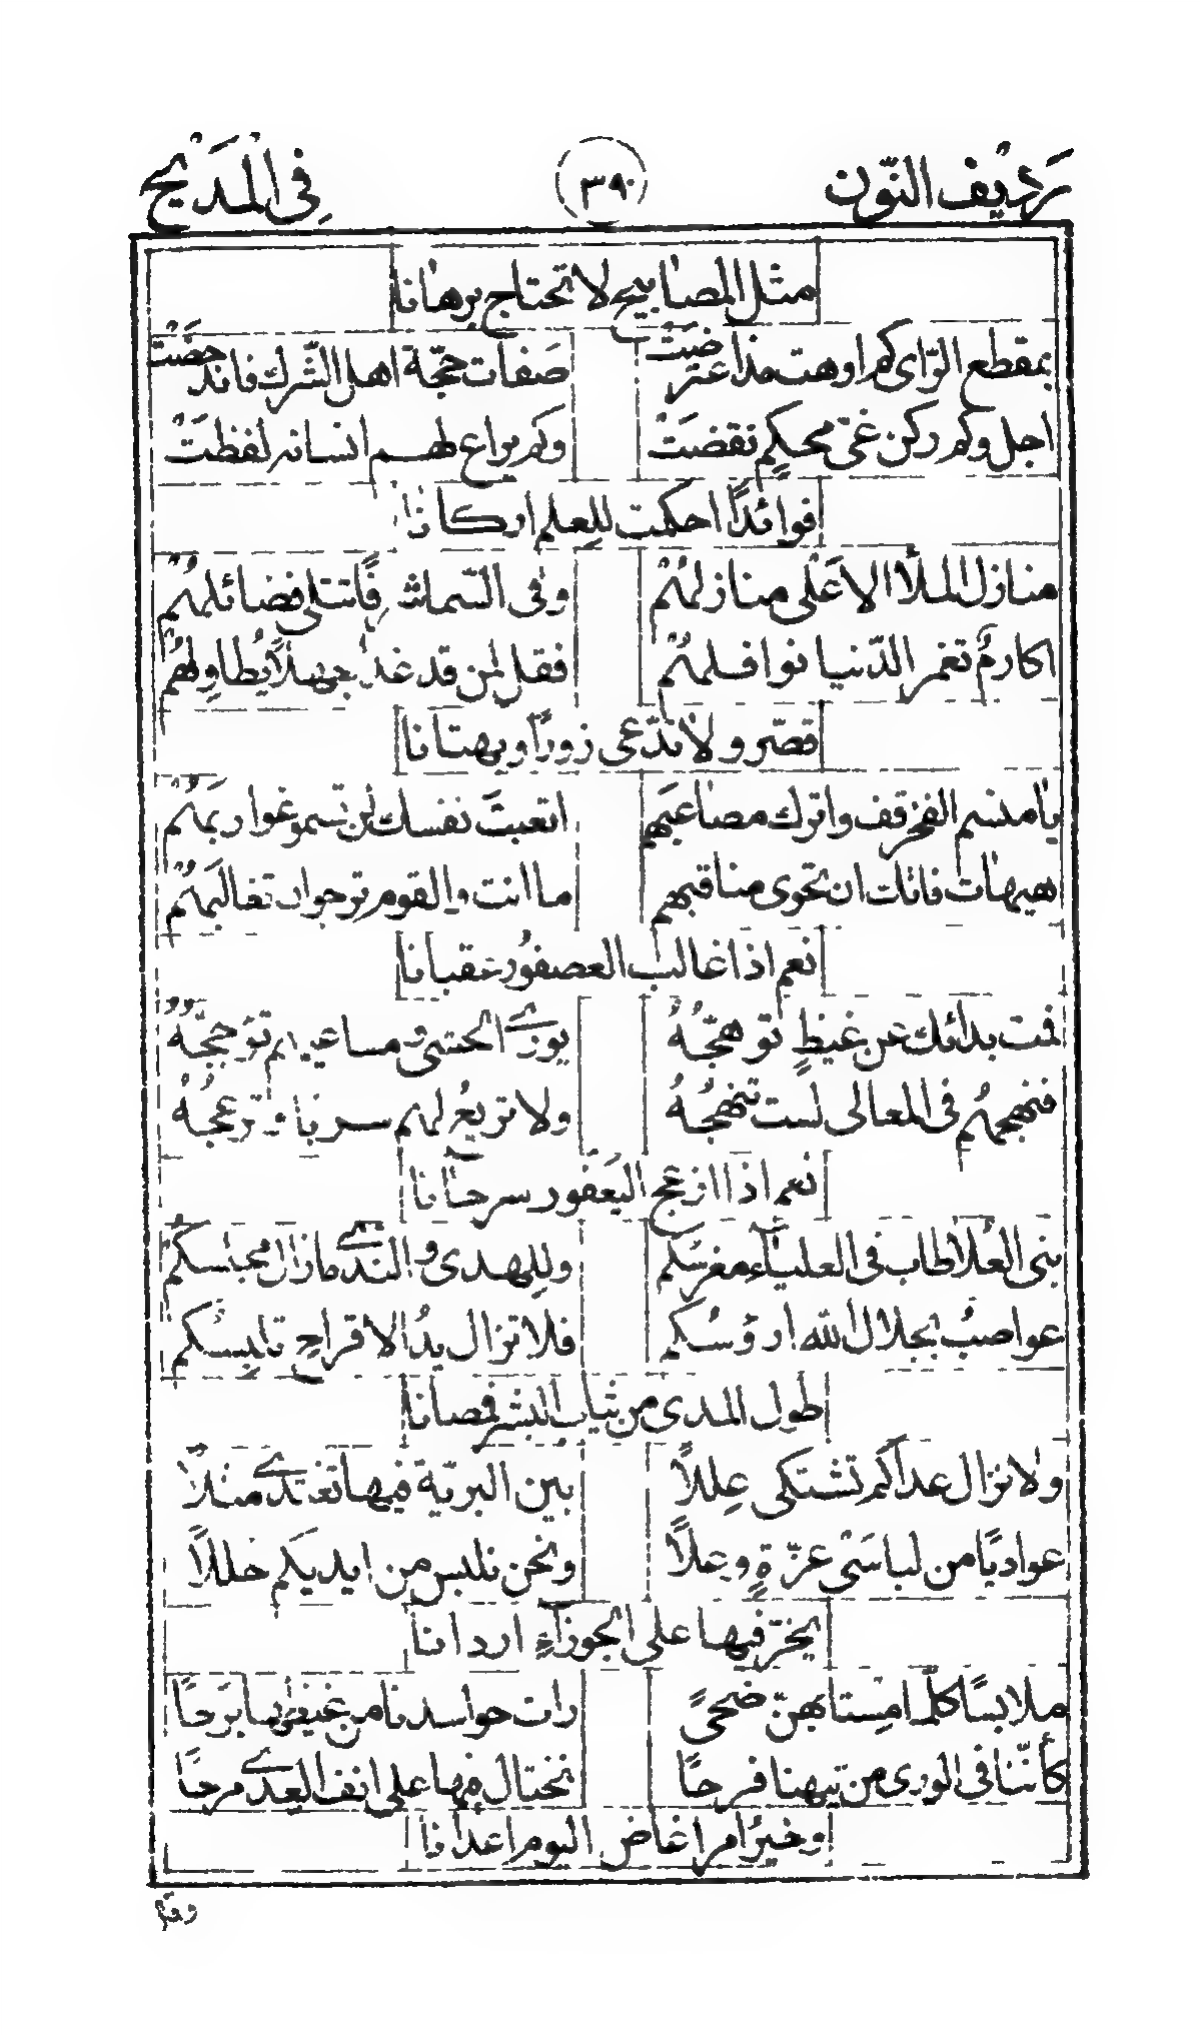 رديف النون ٣٩٠ في المديح
مثل المصابيح لا تحتاج برهانا
بمقطع الرّاى كم اوهت مذ اعترضت صفات حجّة اهل الشّرك فاندحضت
اجل وكم ركن غىّ محكمٍ نقضت وكم يراع لهم انسانه لفظت
فوائدًا احكمت للعلم اركانا
منازل الملأ الاعلى منازلهُم وفى السّما فضائلهُم
اكارمٌ تغمر الدّنيا نوافلهُم فقل لمن قد غدا جهلاً يُطاولهُم
قصّر ولا تدّعى زورًا وبهتانا
يا منسم الفخر قف واترك مصاعبهم اتعبت نفسك لن تسمو غواربهُم
هيهات فاتك ان تحوى مناقبهم ما انت والقوم ترجوا تغالبهُم
نعم اذا غالب العصفور عقبانا
فمت بدائك عن غيظٍ توهّجُهُ يورى الحشى و مساعيهم تؤجّجُهُ
فنهجهُم فى المعالى لست تنهجُهُ ولا تريعُ لهم سربا وتزعجُهُ
نعم اذا ازعج اليعفور سرحانا
بنى العُلا طاب فى العلياء مغرسُكم وللهدى و الندى ما زال مجلسكم
عواصبُ بجلال الله ارؤسُكم فلا تزال يدُ الافراح تلبسُكم
طول المدى من ثياب البشر قمصانا
ولا تزال عداكم تشتكى عِللاً بين البريّة فيها تغتدى مثلاً
عواديًا من لباسَى عزّةٍ وعلاً ونحن نلبس من ايديكم حللاً
يخرّ فيها على الجوزاء اردانا
ملابسًا كلّما مستنا بهنّ ضحىً رات حواسدنا من غيظها برحا
كأنّنا فى الورى من تيهنا فرحًا نختال فيها على انف العدى مرحًا
وخيرُ امر اغاض اليوم اعدانا